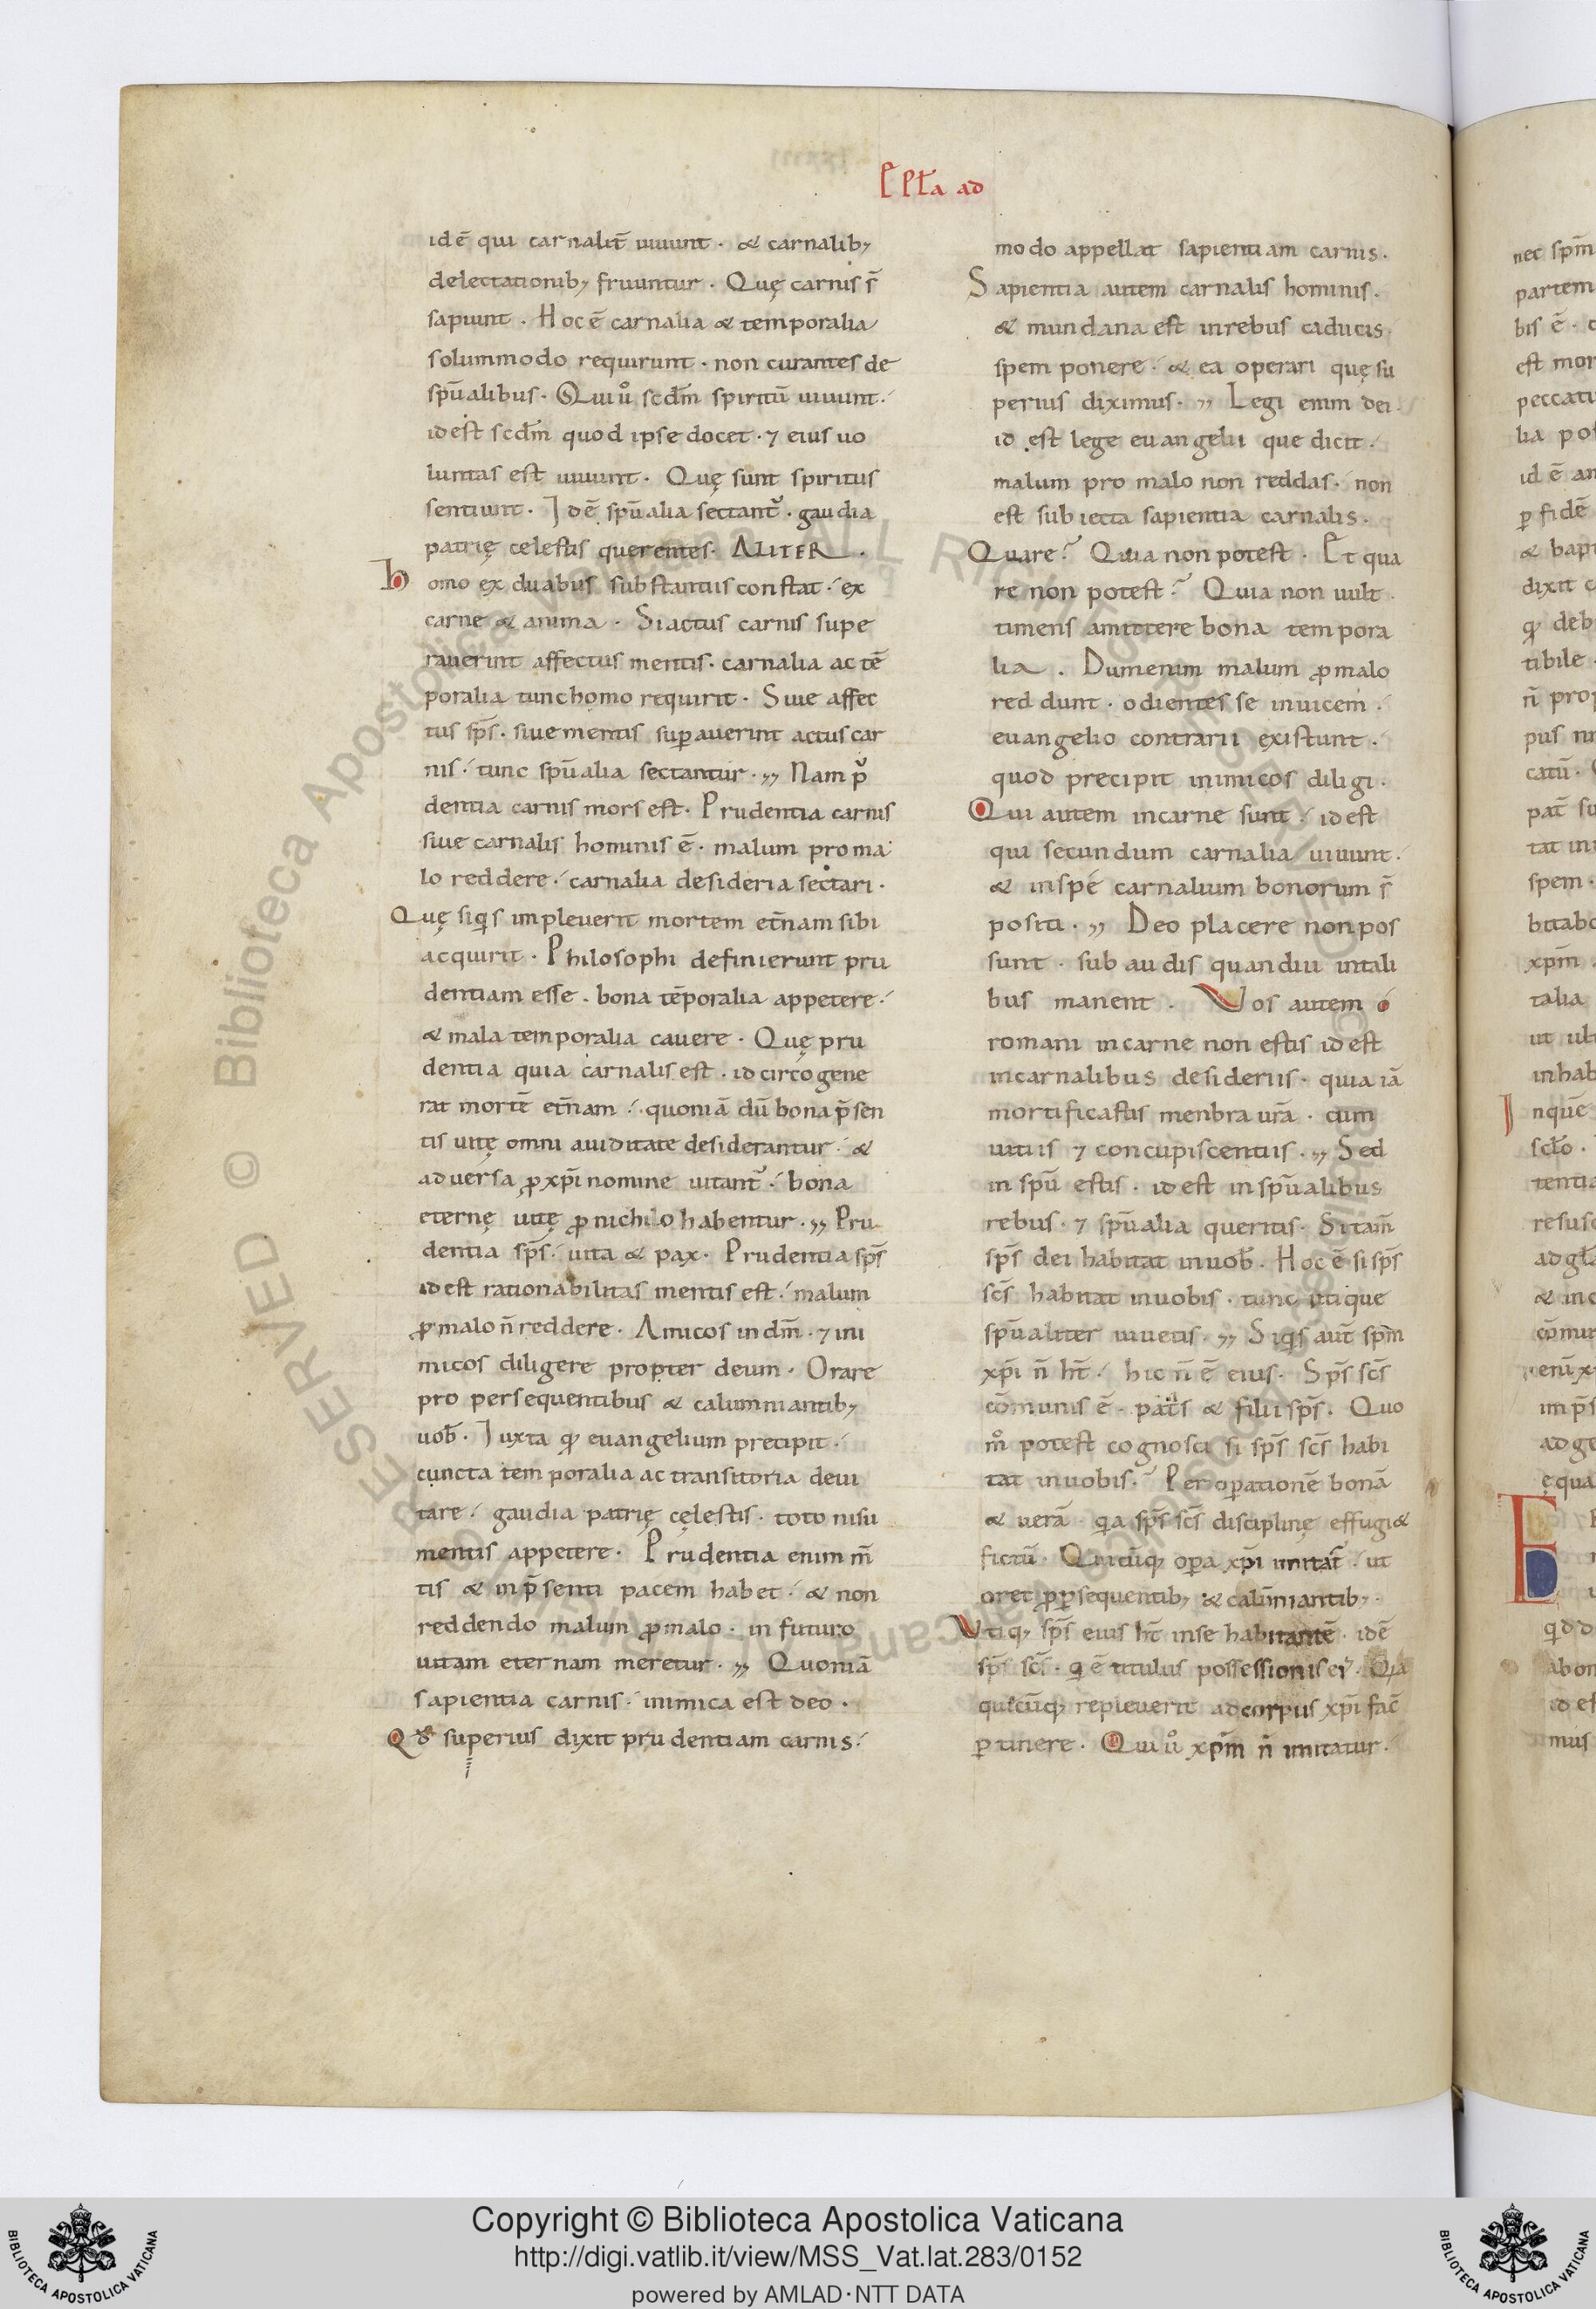 EPŁa ad
idē qui carnalit̄ uiuunt · & carnalib;
delectationib; fruuntur · Quę carnis s̄
sapiunt · Hoc ē carnalia & temporalia
solummodo requirunt · non curantes de
sp̄ualibus · Qui ů scd̄m spiritū uiuunt ·
id est scd̄m quod ipse docet · ⁊ eius uo
luntas est uiuunt · Quę sunt spiritus
sentiunt · Id ē sp̄ualia sectant᷑ · gaudia
patrię celestis querentes · ALITER ·
homo ex duabus substantiis constat · ex
carne & anima · Si actus carnis supe
rauerint affectus mentis · carnalia ac tē
poralia tunc homo requirit · Siue affec
tus sp̄s · siue mentis suꝑauerint actus car
nis · tunc sp̄ualia sectantur · ,, Nam pͮ
dentia carnis mors est · Prudentia carnis
siue carnalis hominis ē · malum pro ma
lo reddere · carnalia desideria sectari ·
Quę siq̇s impleuerit mortem et̄nam sibi
acquirit · Philosophi definierunt pru
dentiam esse · bona tēporalia appetere ·
& mala temporalia cauere · Quę pru
dentia quia carnalis est · idcirco gene
rat mortē et̄nam · quoniā dū bona p̄sen
tis uitę omni auiditate desiderantur · &
aduersa ꝓ xp̄i nomine uitant᷑ · bona
eternę uitę ꝓ nichilo habentur · ,, Pru
dentia sp̄s · uita & pax · Prudentia sp̄s
id est rationabilitas mentis est · malum
ꝓ malo n̄ reddere · Amicos in dm̄ · ⁊ ini
micos diligere propter deum · Orare
pro persequentibus & calumniantib;
uob̄ · Iuxta qđ euangelium precipit ·
cuncta temporalia ac transitoria deui
tare · gaudia patrię cęlestis · toto nisu
mentis appetere · Prudentia enim m̄
tis & in p̄senti pacem habet · & non
reddendo malum ꝓ malo · in futuro
uitam eternam meretur · ,, Quoniā
sapientia carnis · inimica est deo ·
Qđ superius dixit prudentiam carnis ·
modo appellat sapientiam carnis ·
Sapientia autem carnalis hominis ·
& mundana est in rebus caducis
spem ponere · & ea operari quę su
perius diximus · ,, Legi enim dei
id est lege euangelii que dicit ·
malum pro malo non reddas · non
est subiecta sapientia carnalis ·
Quare? Quia non potest · Et qua
re non potest? Quia non uult ·
timens amittere bona tempora
lia · Dum enim malum ꝓ malo
reddunt · odientes se inuicem ·
euangelio contrarii existunt ·
quod precipit inimicos diligi ·
Qui autem in carne sunt · id est
qui secundum carnalia uiuunt ·
& in spe carnalium bonorum s̄
positi · ,, Deo placere non pos
sunt · subaudis quandiu in tali
bus manent · Vos autem o
romani in carne non estis id est
in carnalibus desideriis · quia iā
mortificastis menbra ur̄a · cum
uitiis ⁊ concupiscentiis · ,, Sed
in spū estis · id est in sp̄ualibus
rebus · ⁊ sp̄ualia queritis · Si tam̄
sp̄s dei habitat in uob̄ · Hoc ē si sp̄s
sc̄s habitat in uobis · tunc utique
sp̄ualiter uiuetis · ,, Siq̇s aut̄ sp̄m
xp̄i n̄ ht̄ · hic n̄ ē eius · Sp̄s sc̄s
cōmunis ē · pat̄s & filii sp̄s · Quo
m̊ potest cognosci si sp̄s sc̄s habi
tat in uobis? Per oꝑationē bonā
& uerā · q̇a sp̄s sc̄s disciplinę effugi&
fictū · Quicūq; oꝑa xp̄i imitat᷑ · ut
oret ꝓ ꝑsequentib; & calūniantib; ·
Vtiq; sp̄s eius ht̄ in se habitantē · id ē
sp̄s sc̄s · q̇ ē titulus possessionis ei᷑ · Q̇a
quęcūq; repleuerit ad corpus xp̄i fac̄
ꝑtinere · Qui ů xp̄m n̄ imitatur ·
Copyright © Biblioteca Apostolica Vaticana
http://digi.vatlib.it/view/MSS_Vat.lat.283/0152
powered by AMLAD·NTT DATA